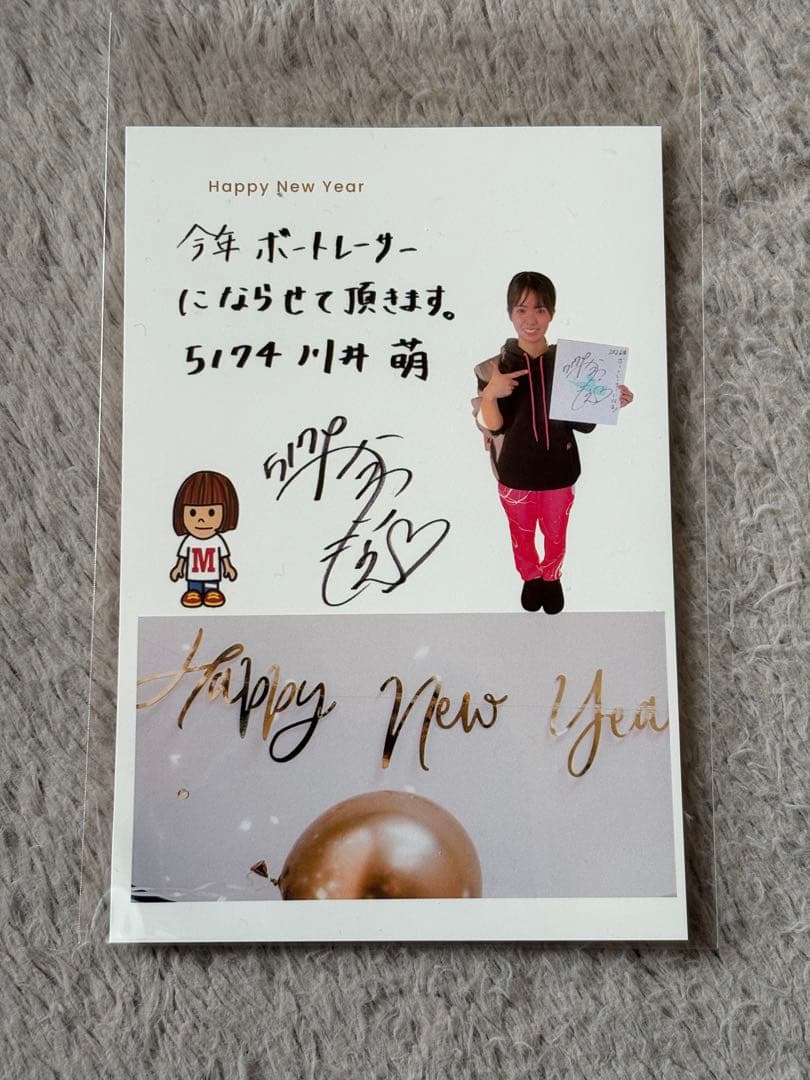 Happy New Year
今年 ボートレーサー
にならせて頂きます。
5174 川井 萌
5174 かわい
もえ
M
Happy New Yea